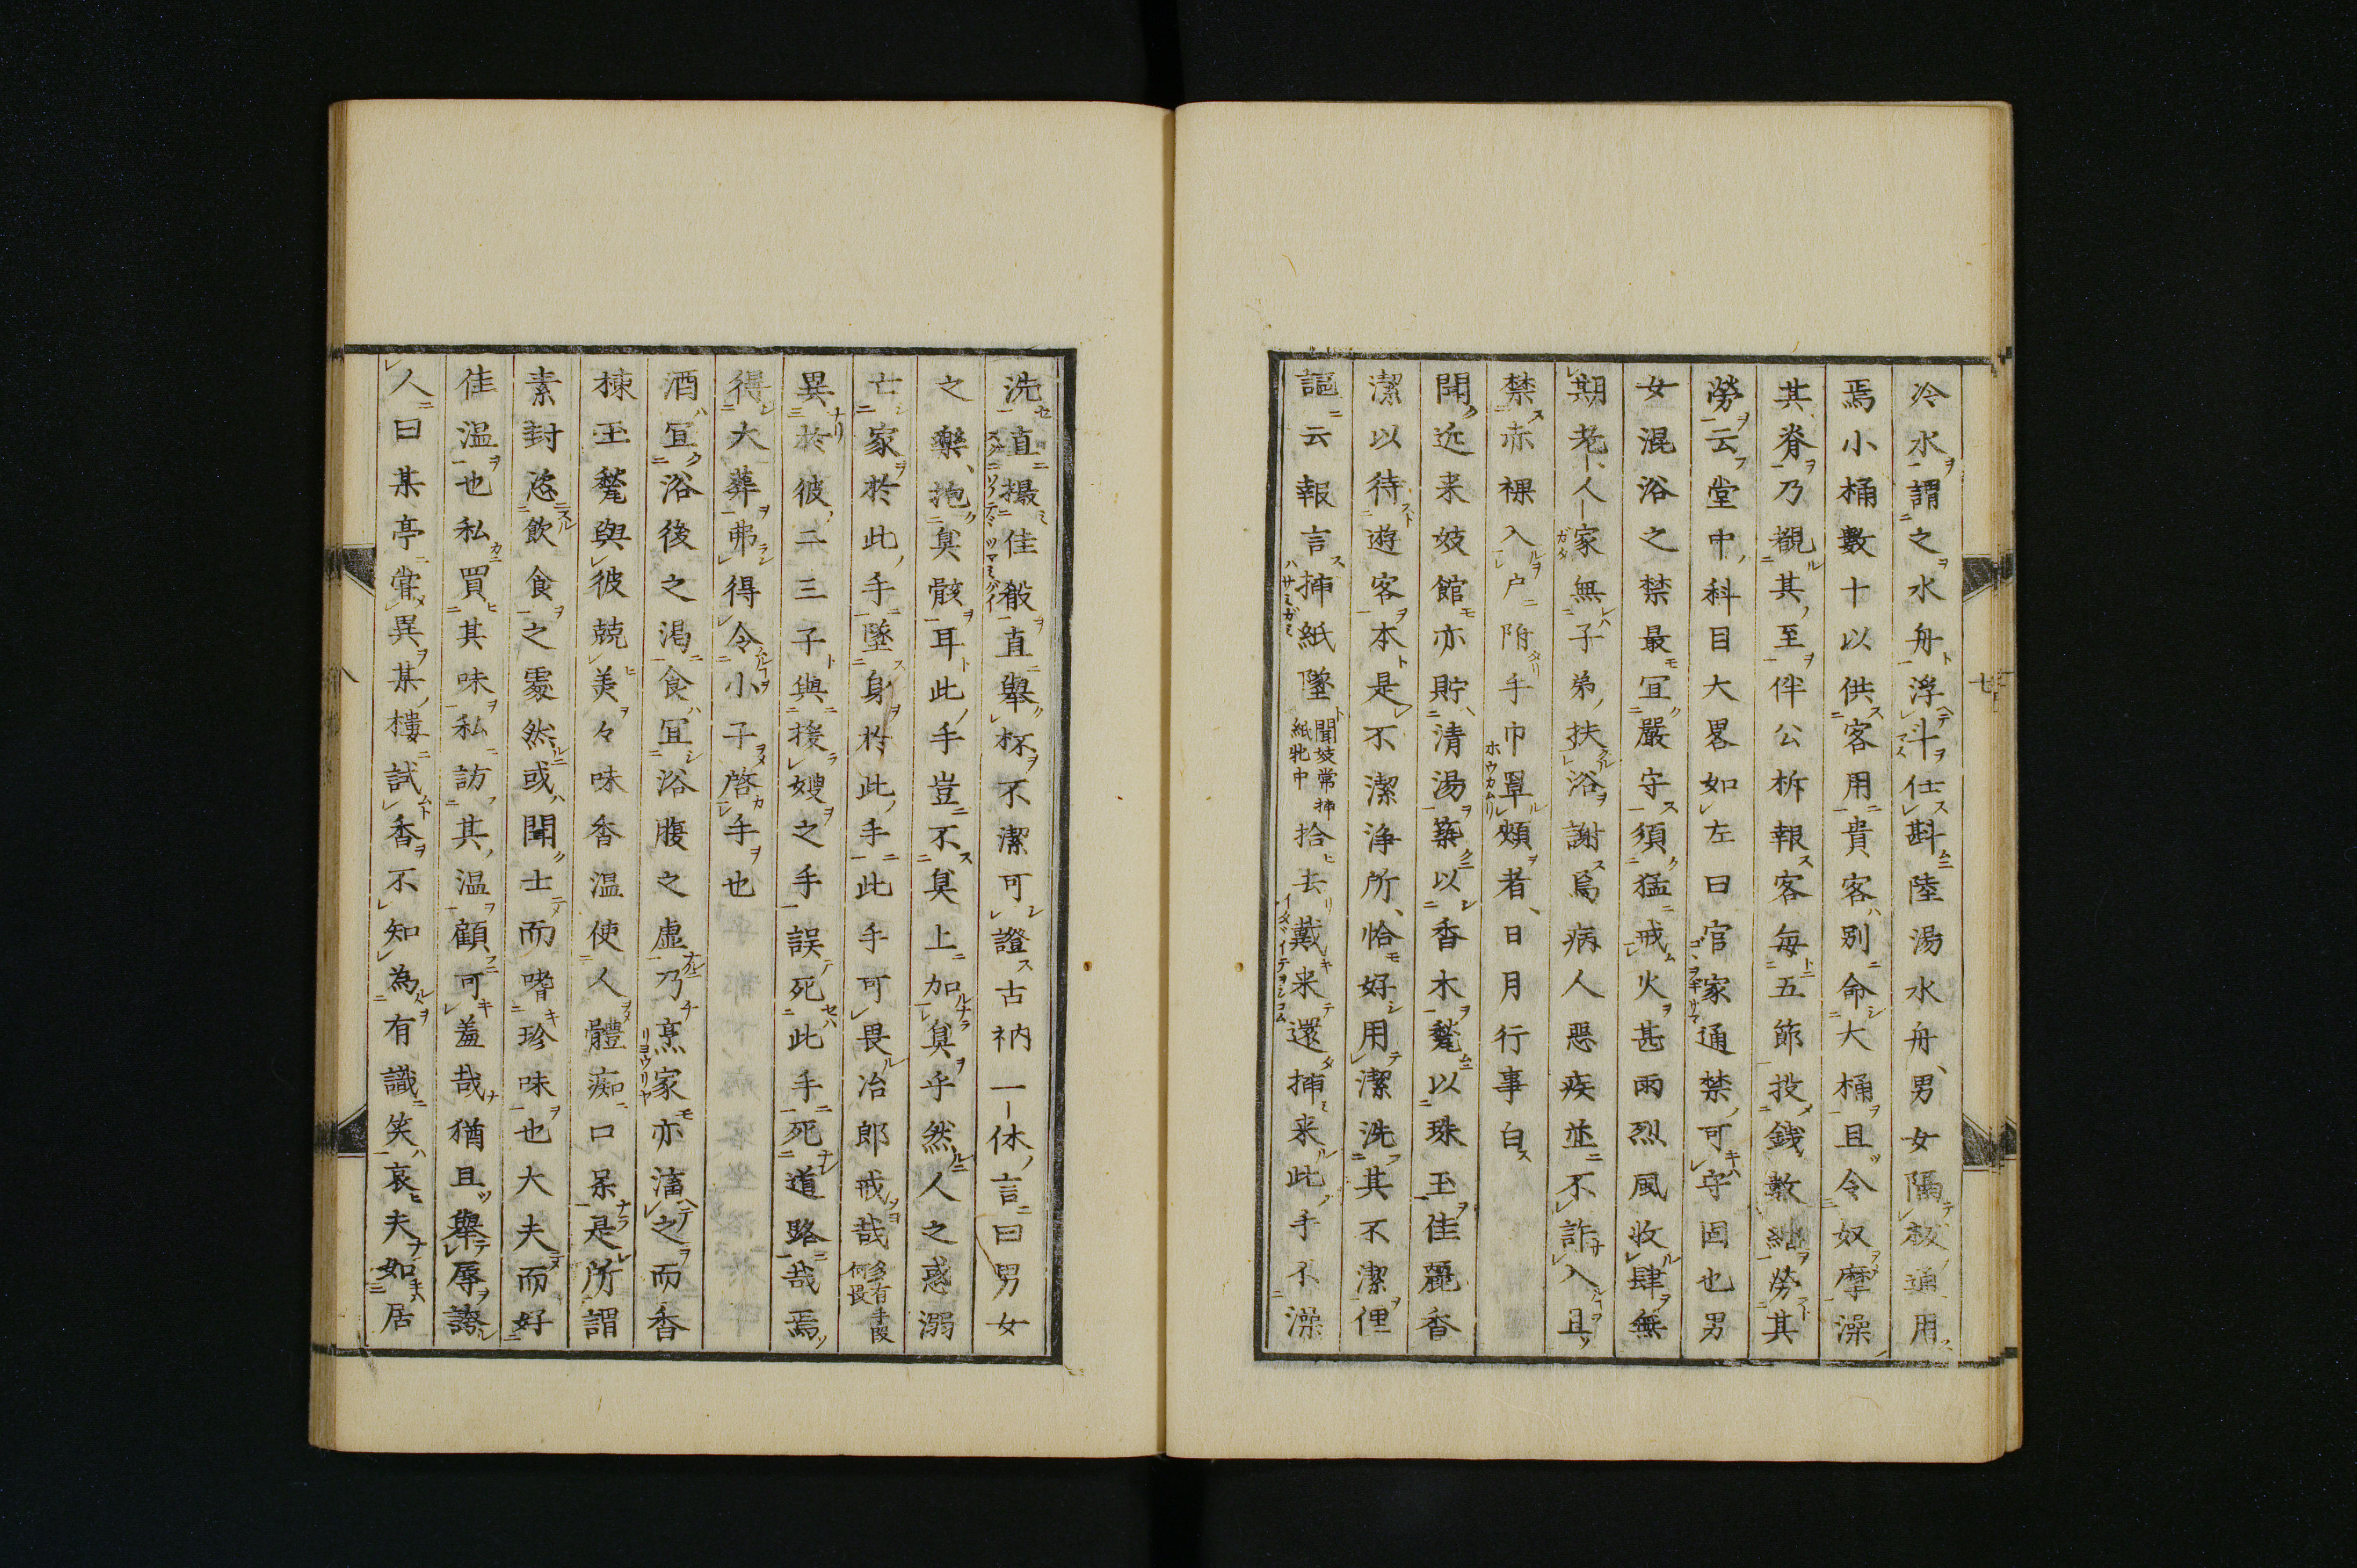 冷水謂之水舟浮斗仕斟陸湯水舟男女隔板通用
焉小桶數十以供客用貴客別命大桶且令奴摩澡
其脊乃覩其至伴公柝報客每五節投錢數緡勞其
勞云堂中科目大畧如左曰官家通禁可守固也男
女混浴之禁最冝嚴守須猛戒火甚雨烈風收肆無
期老人家無子弟扶浴謝焉病人惡疾並不許入且
禁赤裸入户附手巾罩頰者日月行事白
聞近来妓館亦貯清湯藥以香木甃以珠玉佳麗香
潔以待遊客本是不潔淨所恰好用潔洗其不潔俚
謳云報言揷紙墜聞妓常揷紙牝中拾去戴来還揷来此手不澡
七
洗直撮佳殽直舉杯不潔可證古衲一休言曰男女
之樂抱臭骸耳此手豈不臭上加臭乎然人之惑溺
亡家於此手墜身於此手此手可畏冶郎戒哉多有手段何畏
異於彼二三子與援嫂之手誤死此手死道路哉焉
得大葬弗得令小子啓手也
酒冝浴後之渴食冝浴腹之虛乃烹家亦滀之而香
楝玉甃與彼競美々味香温使人體痴口呆是所謂
素封恣飲食之處然或聞士而嗜珍味也大夫而好
佳温也私買其味私訪其温顧可羞哉猶且舉辱誇
人曰某亭甞異某樓試香不知為有識笑哀夫如居
八